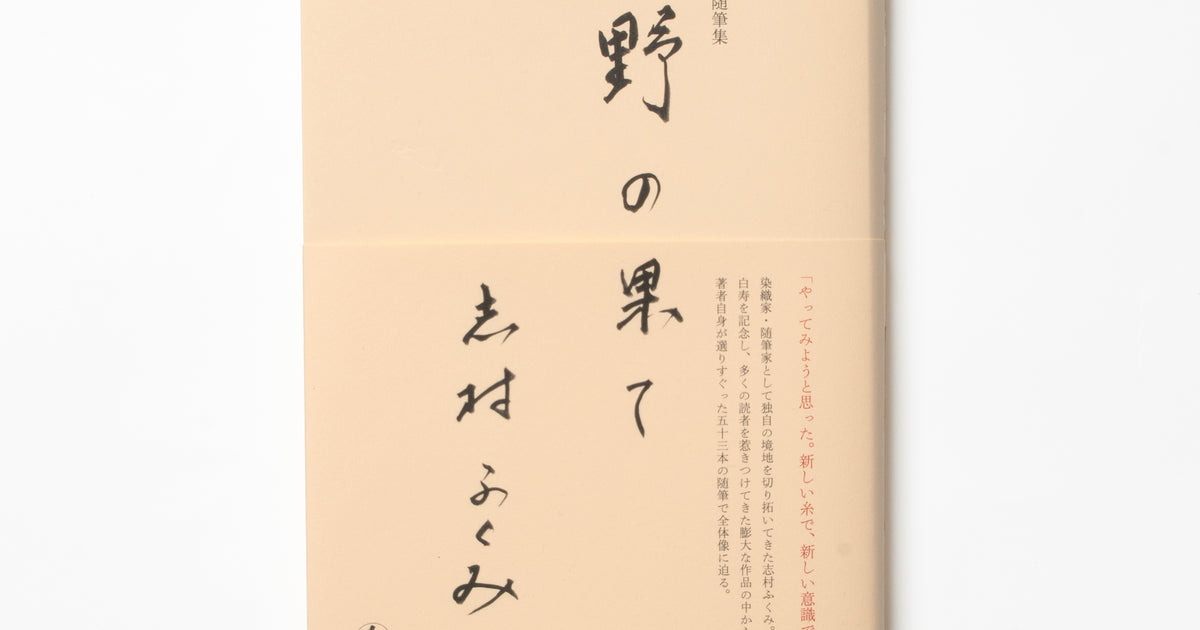 随筆集
野の果て
志村ふくみ
「やってみようと思った。新しい糸で、新しい意識で
染織家・随筆家として独自の境地を切り拓いてきた志村ふくみ。
白寿を記念し、多くの読者を惹きつけてきた膨大な作品の中から
著者自身が選りすぐった五十三本の随筆で全体像に迫る。